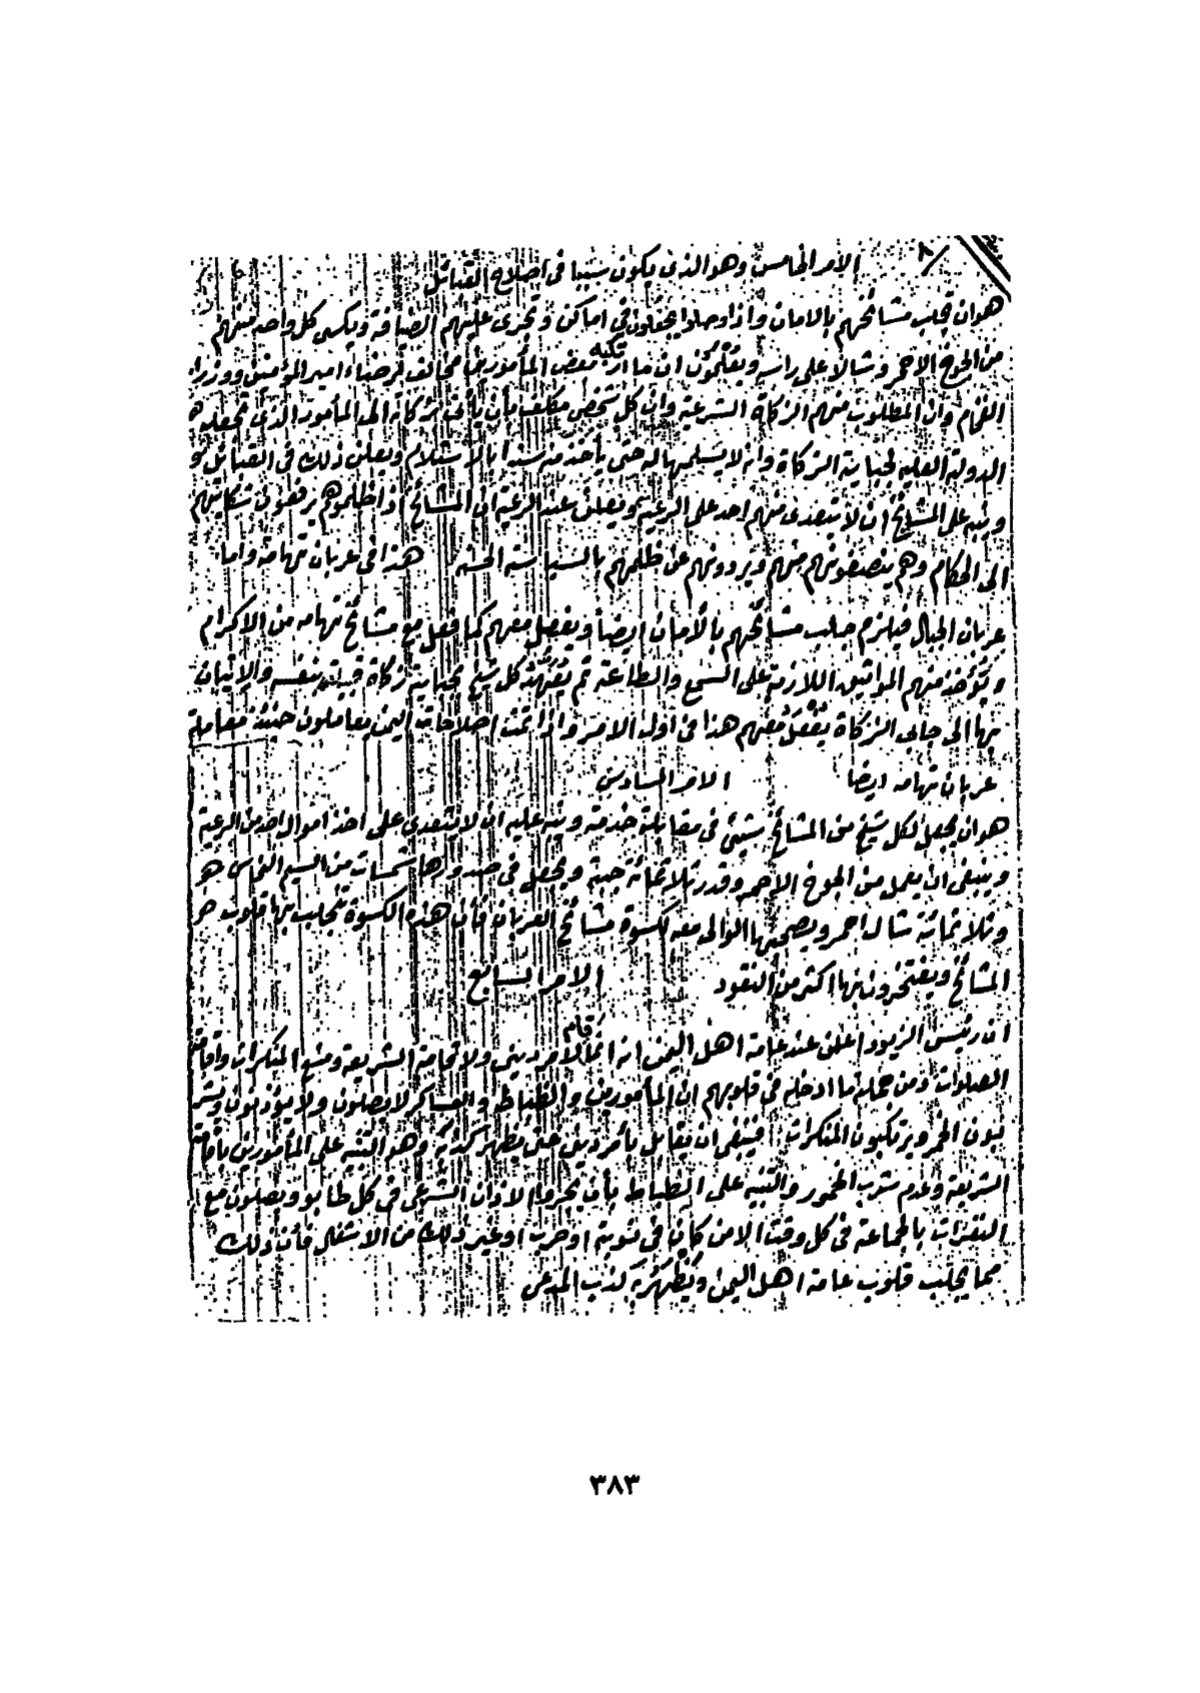 ٨
الامر الخامس وهو الذى يكون سببا فى اصلاح القبائل
هو ان تجلب مشائخهم بالامان واذا وصلوا يجعلون فى اماكن وتجرى عليهم الضيافة ويكسى كل واحد منهم
من الجوخ الاحمر وشالا على راسه ويعلمون ان ما ارتكبه بعض المأمورين مخالف لرضاء امير المؤمنين ووزراء
الفخام وان المطلوب منهم الزكاة الشرعية وان كل شخص مكلف بأن يأتى بزكاته الى المأمور الذى تجعله
الدولة العليه لجباية الزكاة وانه لا يسلمها له حتى يأخذ منه سندا بالاستلام ويعلن ذلك فى القبائل
وينبه على المشائخ ان لا يتعدى منهم احد على الرعية ويعلن عند الرعية ان المشائخ اذا ظلموهم يرفعون شكايتهم
الى الحكام وهم ينصفونهم منهم ويردونهم عن ظلمهم بالسياسة الحسنه هذا فى عربان تهامة واما
عربان الجبال فيلزم جلب مشائخهم بالأمان ايضا ويفعل معهم كما فعل مع مشائخ تهامه من الاكرام
وتؤخذ منهم المواثيق اللازمة على السمع والطاعة ثم يتعهد كل شيخ بجباية زكاة قبيلته بنفسه والاتيان
بها الى جابى الزكاة يفعل معهم هذا فى اول الامر واذا تمت اصلاحات اليمن يعاملون حينئذ معاملة
عربان تهامه ايضا الامر السادس
هو ان يجعل لكل شيخ من المشائخ شيئ فى مقابلة خدمته وينبه عليه ان لا يتعدى على اخذ اموال احد من الرعية
وينبغى ان يعمل من الجوخ الاحمر وقدر ثلاثمائة جبة ويجعل فى صدورها شمسات من السيم النحاس
وثلاثمائة شال احمر ويصحبها الوالى معه لكسوة مشائخ العربان فأن هذه الكسوة تجلب بها قلوب
المشائخ ويفتخرون بها اكثر من النقود الامر السابع
ان رئيس الزيود اعلن عند عامة اهل اليمن انه انما قام لامر دينى ولاقامة الشريعة ومنع المنكرات واقامة
الصلوات ومن جملة ما ادخله فى قلوبهم ان المأمورين والظباط والعساكر لا يصلون ولا يؤذنون ويشر
بون الخمر ويرتكبون المنكرات فينبغى ان يقابل بأمر دينى حتى يظهر كذبه وهو التنبيه على المأمورين باقامة
الشريعة وعدم شرب الخمور والتنبيه على الظباط بأن يجروا الاذان الشرعى فى كل طابور ويصلون مع
النفرات بالجماعة فى كل وقت الا من كان فى نوبة او حرب او غير ذلك من الاشغال فأن ذلك
مما يجلب قلوب عامة اهل اليمن ويظهر به كذب المدعى
٣٨٣